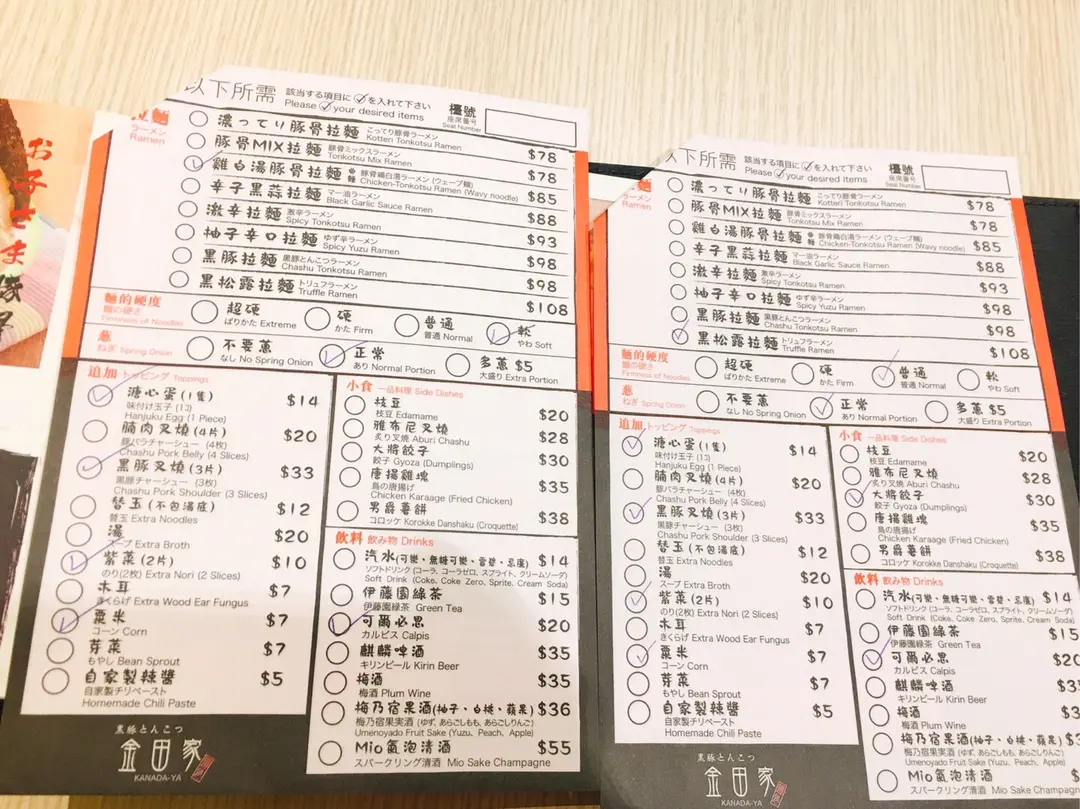 お子さま
以下所需 該当する項目に✓を入れて下さい
Please ✓ your desired items
檯號
座席番号
Seat Number
拉麵
ラーメン
Ramen
濃ってり豚骨拉麵 こってり豚骨ラーメン
Kotteri Tonkotsu Ramen $78
豚骨MIX拉麵 豚骨ミックスラーメン
Tonkotsu Mix Ramen $78
雞白湯豚骨拉麵 豚骨鶏白湯ラーメン(ウェーブ麵)
Chicken-Tonkotsu Ramen (Wavy noodle) $85
辛子黑蒜拉麵 マー油ラーメン
Black Garlic Sauce Ramen $88
激辛拉麵 激辛ラーメン
Spicy Tonkotsu Ramen $93
柚子辛口拉麵 ゆず辛ラーメン
Spicy Yuzu Ramen $98
黑豚拉麵 黒豚とんこつラーメン
Chashu Tonkotsu Ramen $98
黑松露拉麵 トリュフラーメン
Truffle Ramen $108
麵的硬度
麵の硬さ
Firmness of Noodles
超硬
ばりかた Extreme
硬
かた Firm
普通
普通 Normal
軟
やわ Soft
蔥
ねぎ Spring Onion
不要蔥
なし No Spring Onion
正常
あり Normal Portion
多蔥 $5
大盛り Extra Portion
追加 トッピング Toppings
溏心蛋(1隻) $14
味付け玉子 (1コ)
Hanjuku Egg (1 Piece)
腩肉叉燒(4片) $20
豚バラチャーシュー (4枚)
Chashu Pork Belly (4 Slices)
黑豚叉燒(3片) $33
黒豚チャーシュー (3枚)
Chashu Pork Shoulder (3 Slices)
替玉(不包湯底) $12
替玉 Extra Noodles
湯 $20
スープ Extra Broth
紫菜(2片) $10
のり(2枚) Extra Nori (2 Slices)
木耳 $7
きくらげ Extra Wood Ear Fungus
粟米 $7
コーン Corn
芽菜 $7
もやし Bean Sprout
自家製辣醬 $5
自家製チリペースト
Homemade Chili Paste
小食 一品料理 Side Dishes
枝豆 $20
枝豆 Edamame
雅布尼叉燒 $28
炙り叉焼 Aburi Chashu
大將餃子 $30
餃子 Gyoza (Dumplings)
唐揚雞塊 $35
鳥の唐揚げ
Chicken Karaage (Fried Chicken)
男爵薯餅 $38
コロッケ Korokke Danshaku (Croquette)
飲料 飲み物 Drinks
汽水(可樂・無糖可樂・雪碧・忌廉) $14
ソフトドリンク (コーラ、コーラゼロ、スプライト、クリームソーダ)
Soft Drink (Coke, Coke Zero, Sprite, Cream Soda)
伊藤園綠茶 $15
伊藤園緑茶 Green Tea
可爾必思 $20
カルピス Calpis
麒麟啤酒 $35
キリンビール Kirin Beer
梅酒 $35
梅酒 Plum Wine
梅乃宿果酒(柚子・白桃・蘋果) $36
梅乃宿果実酒 (ゆず、あらごしもも、あらごしりんご)
Umenoyado Fruit Sake (Yuzu, Peach, Apple)
Mio氣泡清酒 $55
スパークリング清酒 Mio Sake Champagne
黒豚とんこつ
金田家
KANADA-YA
以下所需 該当する項目に✓を入れて下さい
Please ✓ your desired items
檯號
座席番号
Seat Number
麵
ラーメン
Ramen
濃ってり豚骨拉麵 こってり豚骨ラーメン
Kotteri Tonkotsu Ramen $78
豚骨MIX拉麵 豚骨ミックスラーメン
Tonkotsu Mix Ramen $78
雞白湯豚骨拉麵 豚骨鶏白湯ラーメン(ウェーブ麵)
Chicken-Tonkotsu Ramen (Wavy noodle) $85
辛子黑蒜拉麵 マー油ラーメン
Black Garlic Sauce Ramen $88
激辛拉麵 激辛ラーメン
Spicy Tonkotsu Ramen $93
柚子辛口拉麵 ゆず辛ラーメン
Spicy Yuzu Ramen $98
黑豚拉麵 黒豚とんこつラーメン
Chashu Tonkotsu Ramen $98
黑松露拉麵 トリュフラーメン
Truffle Ramen $108
麵的硬度
麵の硬さ
Firmness of Noodles
超硬
ばりかた Extreme
硬
かた Firm
普通
普通 Normal
軟
やわ Soft
蔥
ねぎ Spring Onion
不要蔥
なし No Spring Onion
正常
あり Normal Portion
多蔥 $5
大盛り Extra Portion
追加 トッピング Toppings
溏心蛋(1隻) $14
味付け玉子 (1コ)
Hanjuku Egg (1 Piece)
腩肉叉燒(4片) $20
豚バラチャーシュー (4枚)
Chashu Pork Belly (4 Slices)
黑豚叉燒(3片) $33
黒豚チャーシュー (3枚)
Chashu Pork Shoulder (3 Slices)
替玉(不包湯底) $12
替玉 Extra Noodles
湯 $20
スープ Extra Broth
紫菜(2片) $10
のり(2枚) Extra Nori (2 Slices)
木耳 $7
きくらげ Extra Wood Ear Fungus
粟米 $7
コーン Corn
芽菜 $7
もやし Bean Sprout
自家製辣醬 $5
自家製チリペースト
Homemade Chili Paste
小食 一品料理 Side Dishes
枝豆 $20
枝豆 Edamame
雅布尼叉燒 $28
炙り叉焼 Aburi Chashu
大將餃子 $30
餃子 Gyoza (Dumplings)
唐揚雞塊 $35
鳥の唐揚げ
Chicken Karaage (Fried Chicken)
男爵薯餅 $38
コロッケ Korokke Danshaku (Croquette)
飲料 飲み物 Drinks
汽水(可樂・無糖可樂・雪碧・忌廉) $14
ソフトドリンク (コーラ、コーラゼロ、スプライト、クリームソーダ)
Soft Drink (Coke, Coke Zero, Sprite, Cream Soda)
伊藤園綠茶 $15
伊藤園緑茶 Green Tea
可爾必思 $20
カルピス Calpis
麒麟啤酒 $3
キリンビール Kirin Beer
梅酒 $3
梅酒 Plum Wine
梅乃宿果酒(柚子・白桃・蘋果) $3
梅乃宿果実酒 (ゆず、あらごしもも、あらごしりんご)
Umenoyado Fruit Sake (Yuzu, Peach, Apple)
Mio氣泡清酒 $
スパークリング清酒 Mio Sake Champagne
黒豚とんこつ
金田家
KANADA-YA